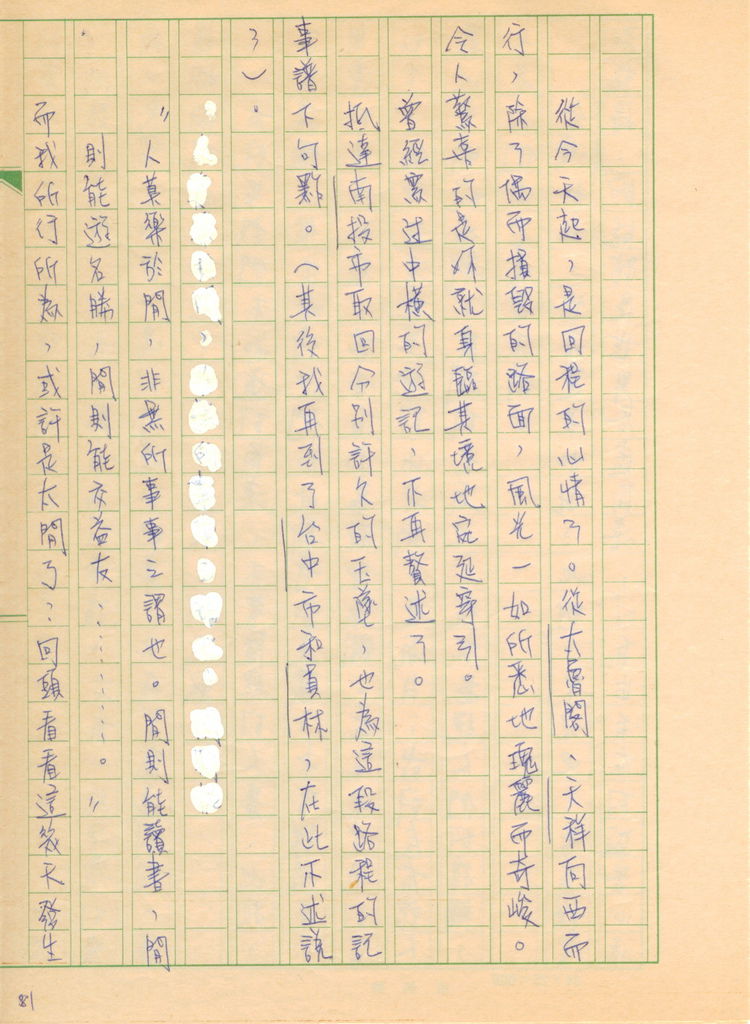 從今天起，是回程的心情了。從太魯閣、天祥向西而
行，除了偶而損毀的路面，風光一如所悉地瑰麗而奇峻。
令人驚喜的是以就身臨其境地宛延穿引。
曾經寫过中橫的遊記，不再贅述了。
抵達南投市取回分別許久的玉墜，也為這段路程的記
事譜下句點。（其後我再到了台中市和員林，在此不述說
了）。
〝人莫樂於閒，非無所事事之謂也。閒則能讀書，閒
則能遊名勝，閒則能交益友…………。〞
而我所行所為，或許是太閒了：回頭看看這幾天發生
81